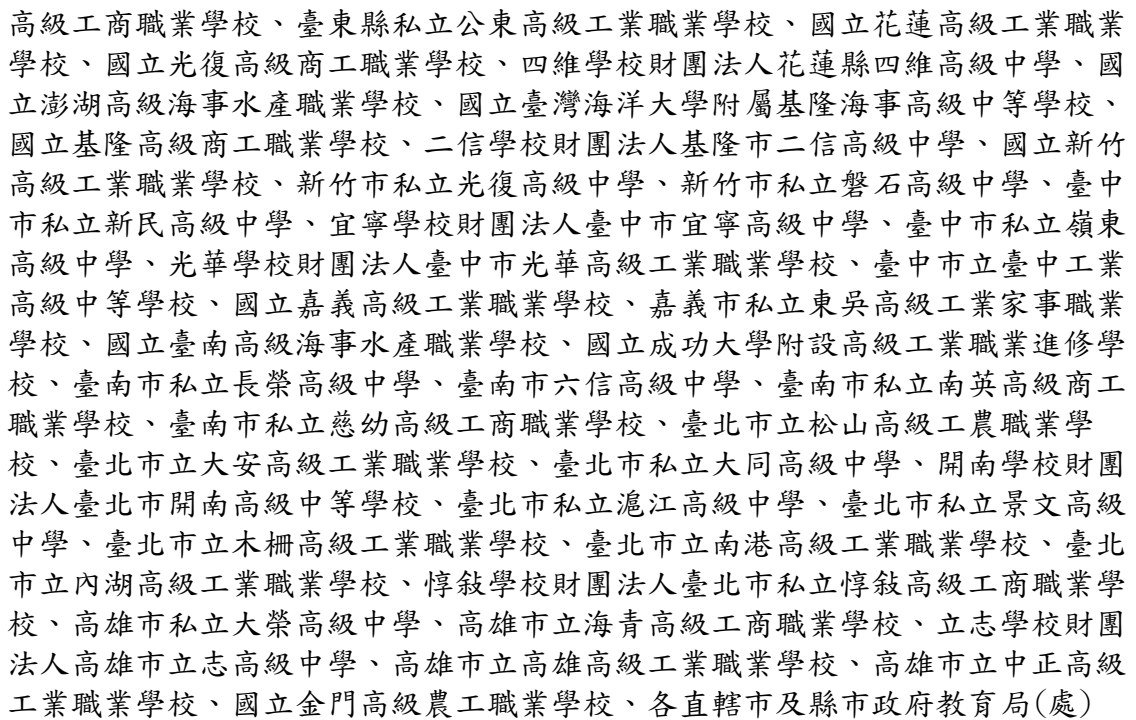 高級工商職業學校、臺東縣私立公東高級工業職業學校、國立花蓮高級工業職業
學校、國立光復高級商工職業學校、四維學校財團法人花蓮縣四維高級中學、國
立澎湖高級海事水產職業學校、國立臺灣海洋大學附屬基隆海事高級中等學校、
國立基隆高級商工職業學校、二信學校財團法人基隆市二信高級中學、國立新竹
高級工業職業學校、新竹市私立光復高級中學、新竹市私立磐石高級中學、臺中
市私立新民高級中學、宜寧學校財團法人臺中市宜寧高級中學、臺中市私立嶺東
高級中學、光華學校財團法人臺中市光華高級工業職業學校、臺中市立臺中工業
高級中等學校、國立嘉義高級工業職業學校、嘉義市私立東吳高級工業家事職業
學校、國立臺南高級海事水產職業學校、國立成功大學附設高級工業職業進修學
校、臺南市私立長榮高級中學、臺南市六信高級中學、臺南市私立南英高級商工
職業學校、臺南市私立慈幼高級工商職業學校、臺北市立松山高級工農職業學
校、臺北市立大安高級工業職業學校、臺北市私立大同高級中學、開南學校財團
法人臺北市開南高級中等學校、臺北市私立滬江高級中學、臺北市私立景文高級
中學、臺北市立木柵高級工業職業學校、臺北市立南港高級工業職業學校、臺北
市立內湖高級工業職業學校、惇敍學校財團法人臺北市私立惇敍高級工商職業學
校、高雄市私立大榮高級中學、高雄市立海青高級工商職業學校、立志學校財團
法人高雄市立志高級中學、高雄市立高雄高級工業職業學校、高雄市立中正高級
工業職業學校、國立金門高級農工職業學校、各直轄市及縣市政府教育局(處)